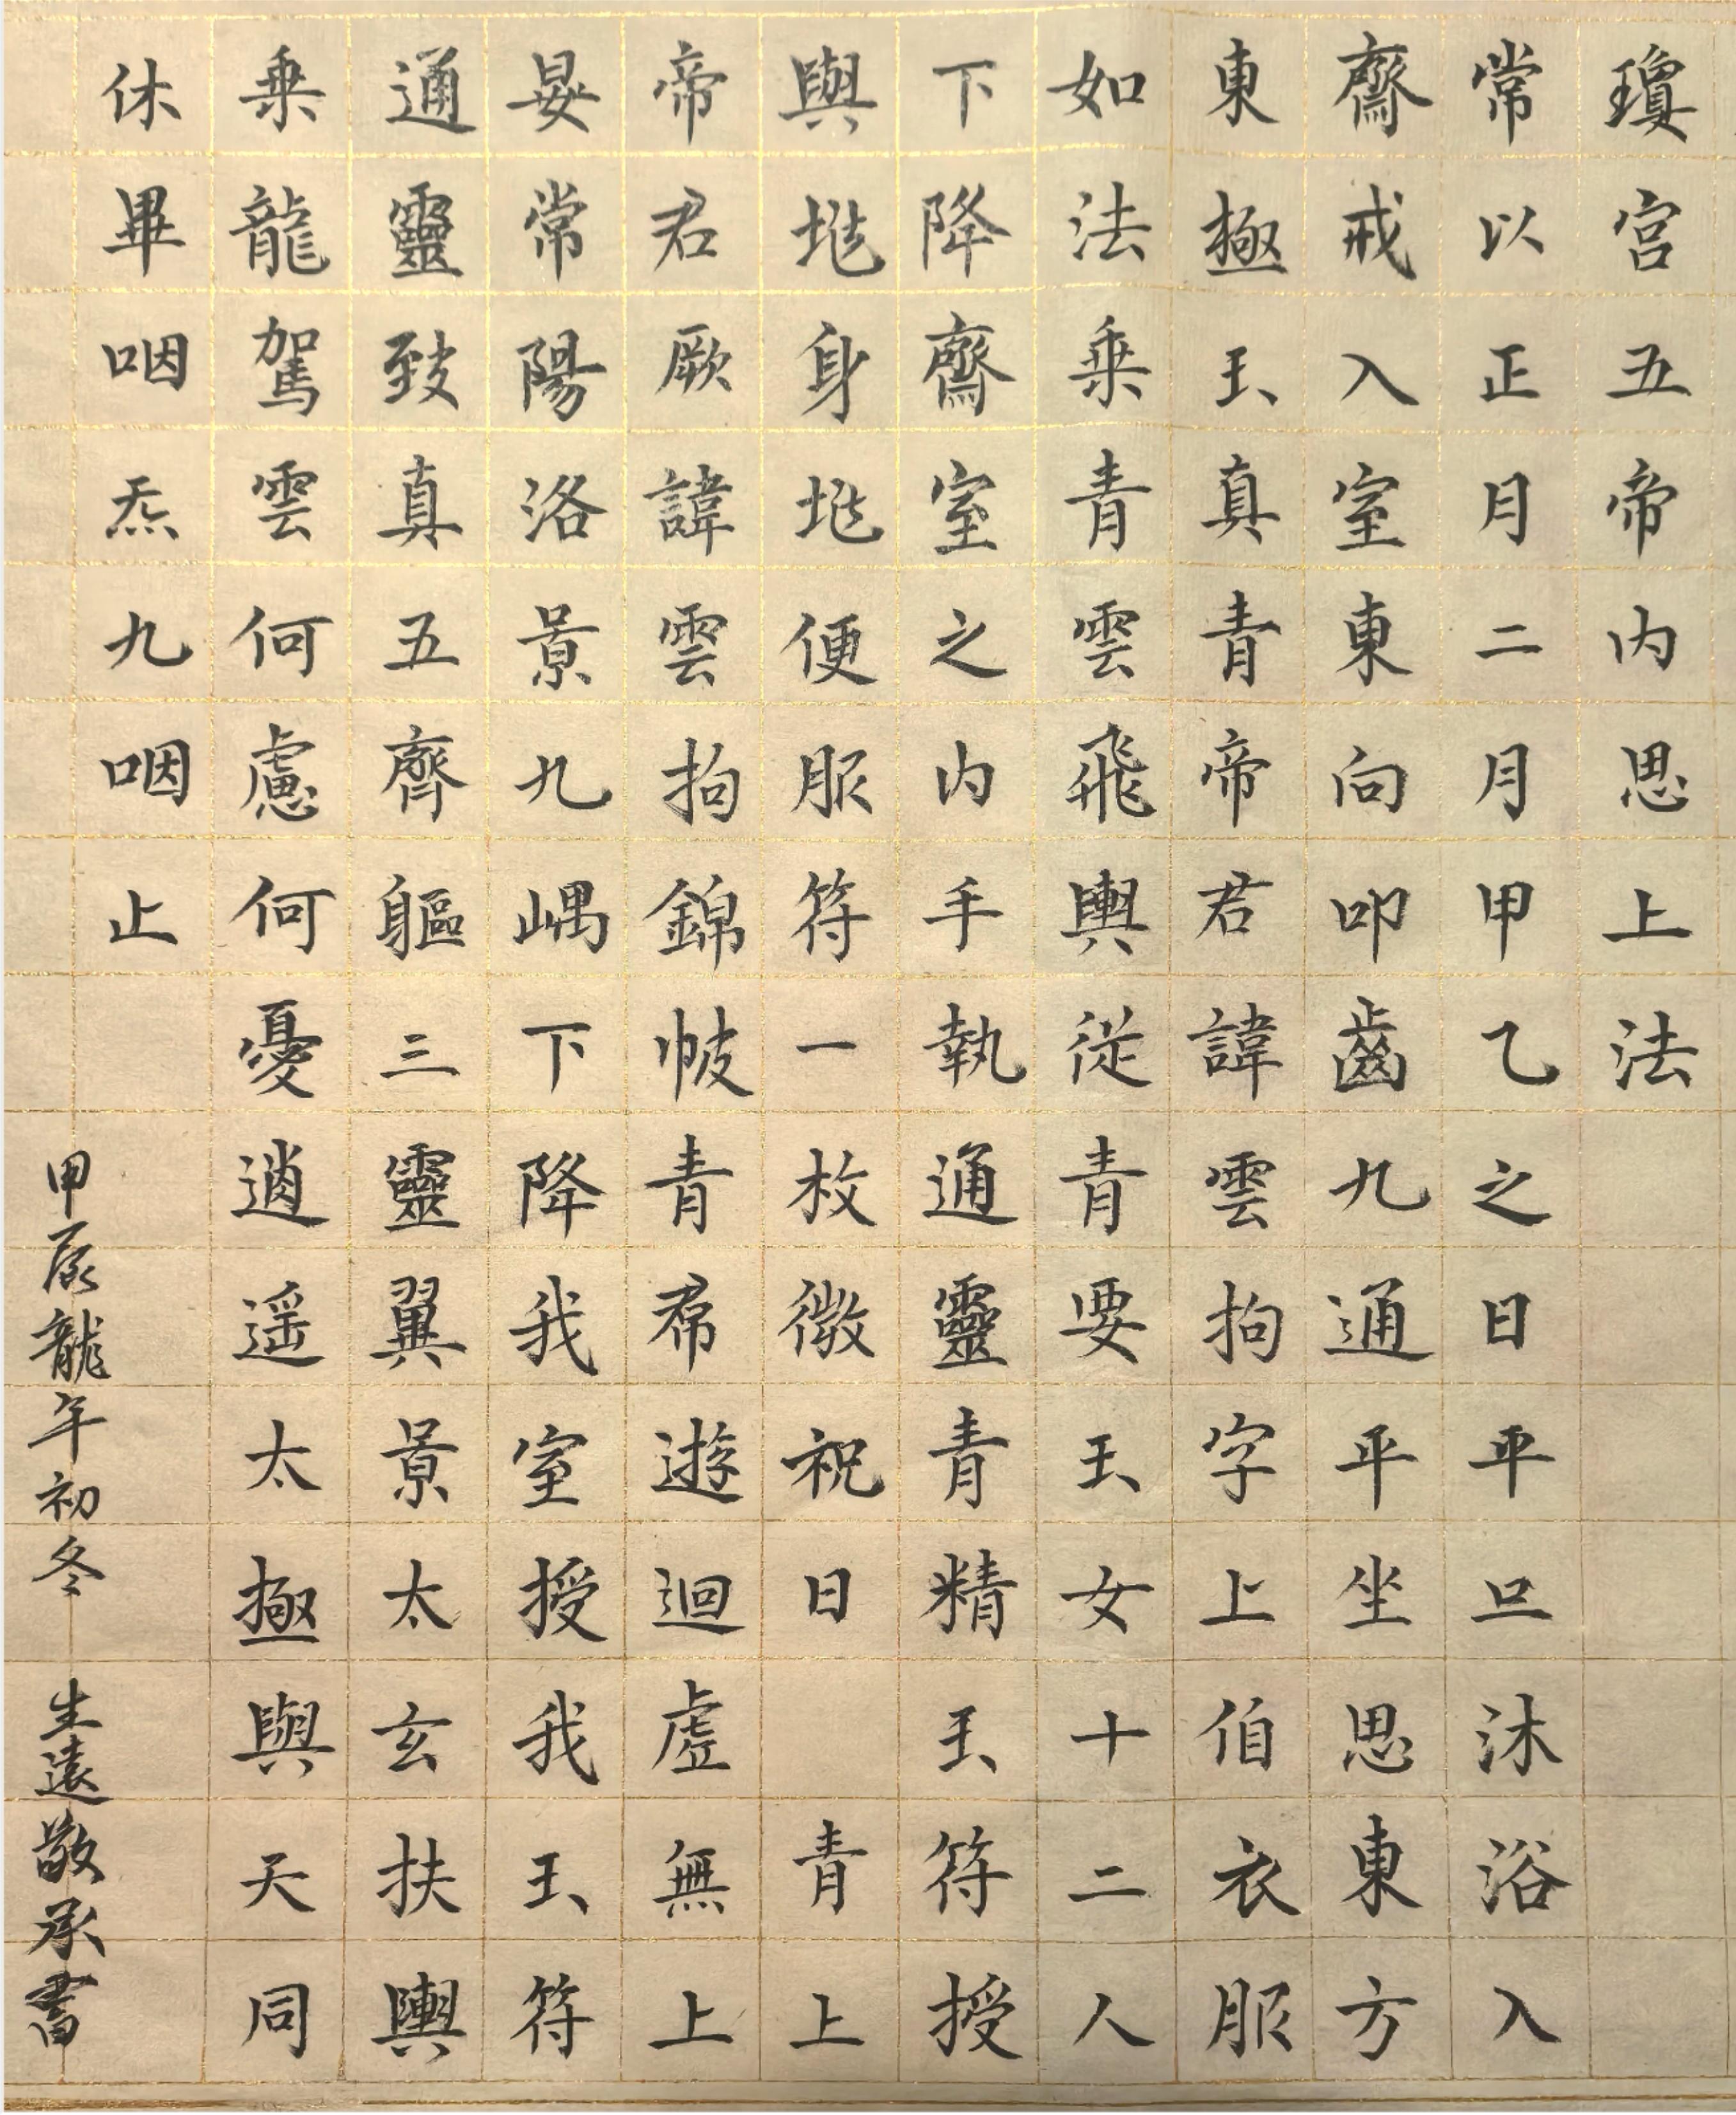 瓊宮五帝内思上法
常以正月二月甲乙之日平旦沐浴入
齋戒入室東向叩齒九通平坐思東方
東極玉真青帝君諱雲拘字上伯衣服
如法乗青雲飛輿從青要玉女十二人
下降齋室之内手執通靈青精玉符授
與兆身兆便服符一枚微祝曰青上
帝君厥諱雲拘錦帔青帬遊迴虛無上
晏常陽洛景九嵎下降我室授我玉符
通靈致真五齊軀三靈翼景太玄扶輿
乗龍駕雲何慮何憂逍遥太極與天同
休畢咽炁九咽止
甲辰龍年初冬 生遠敬承書